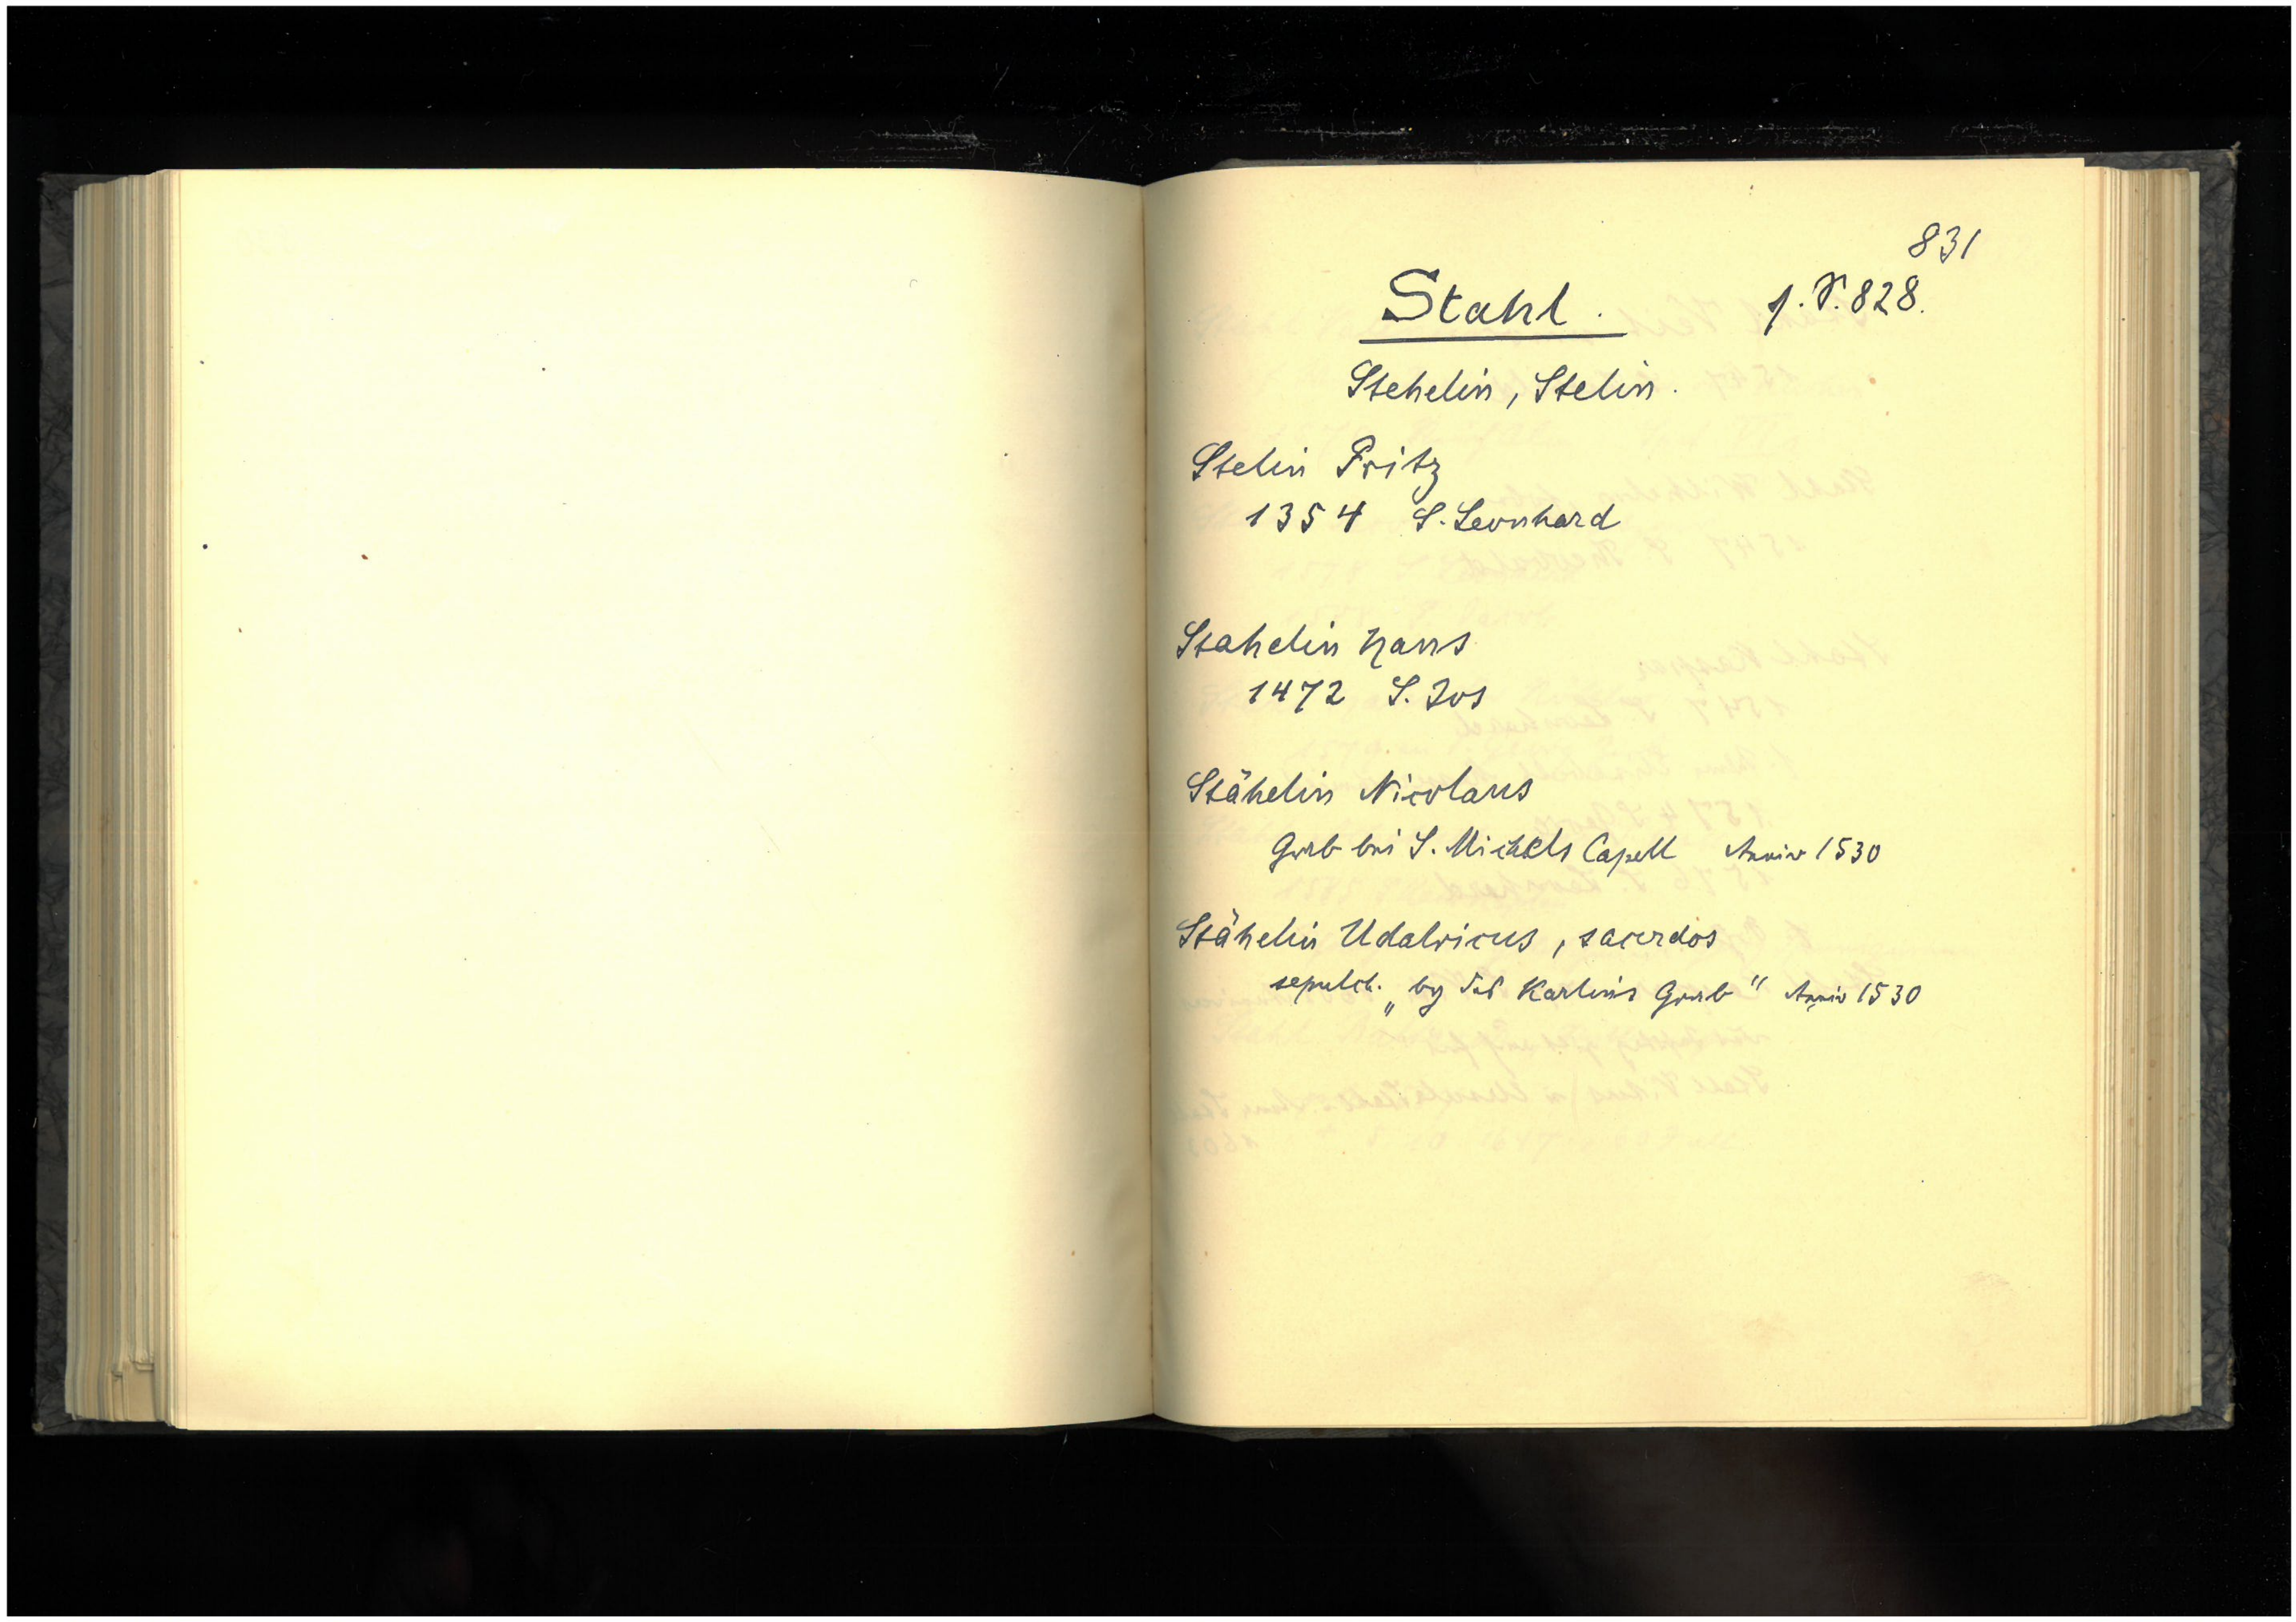 831
Stahl. s. S. 828.
Stehelin, Stelin.
Stelin Fritz
1354 S. Leonhard
Stahelin Hans
1472 S. Jos
Stähelin Nicolaus
Grab bei S. Michels Capell Anniv 1530
Stähelin Udalricus, sacerdos
sepulch. „by des Karlins Grab" Anniv 1530